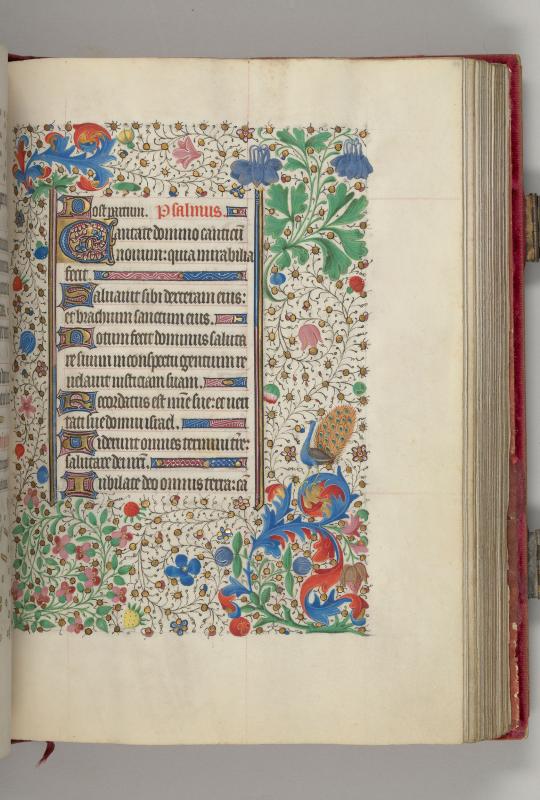 Post partum. Psalmus.
Cantate domino canticũ
nouum: quia mirabilia
fecit.
Saluauit sibi dextera eius:
et brachium sanctum eius.
Notum fecit dominus saluta
re suum in conspectu gentium re
uelauit iusticiam suam.
Recordatus est mĩe sue: et ueri
tati sue domui israel.
Uiderunt omnes termini tẽre:
salutare dei nr̃i.
Iubilate deo omnis terra: cã